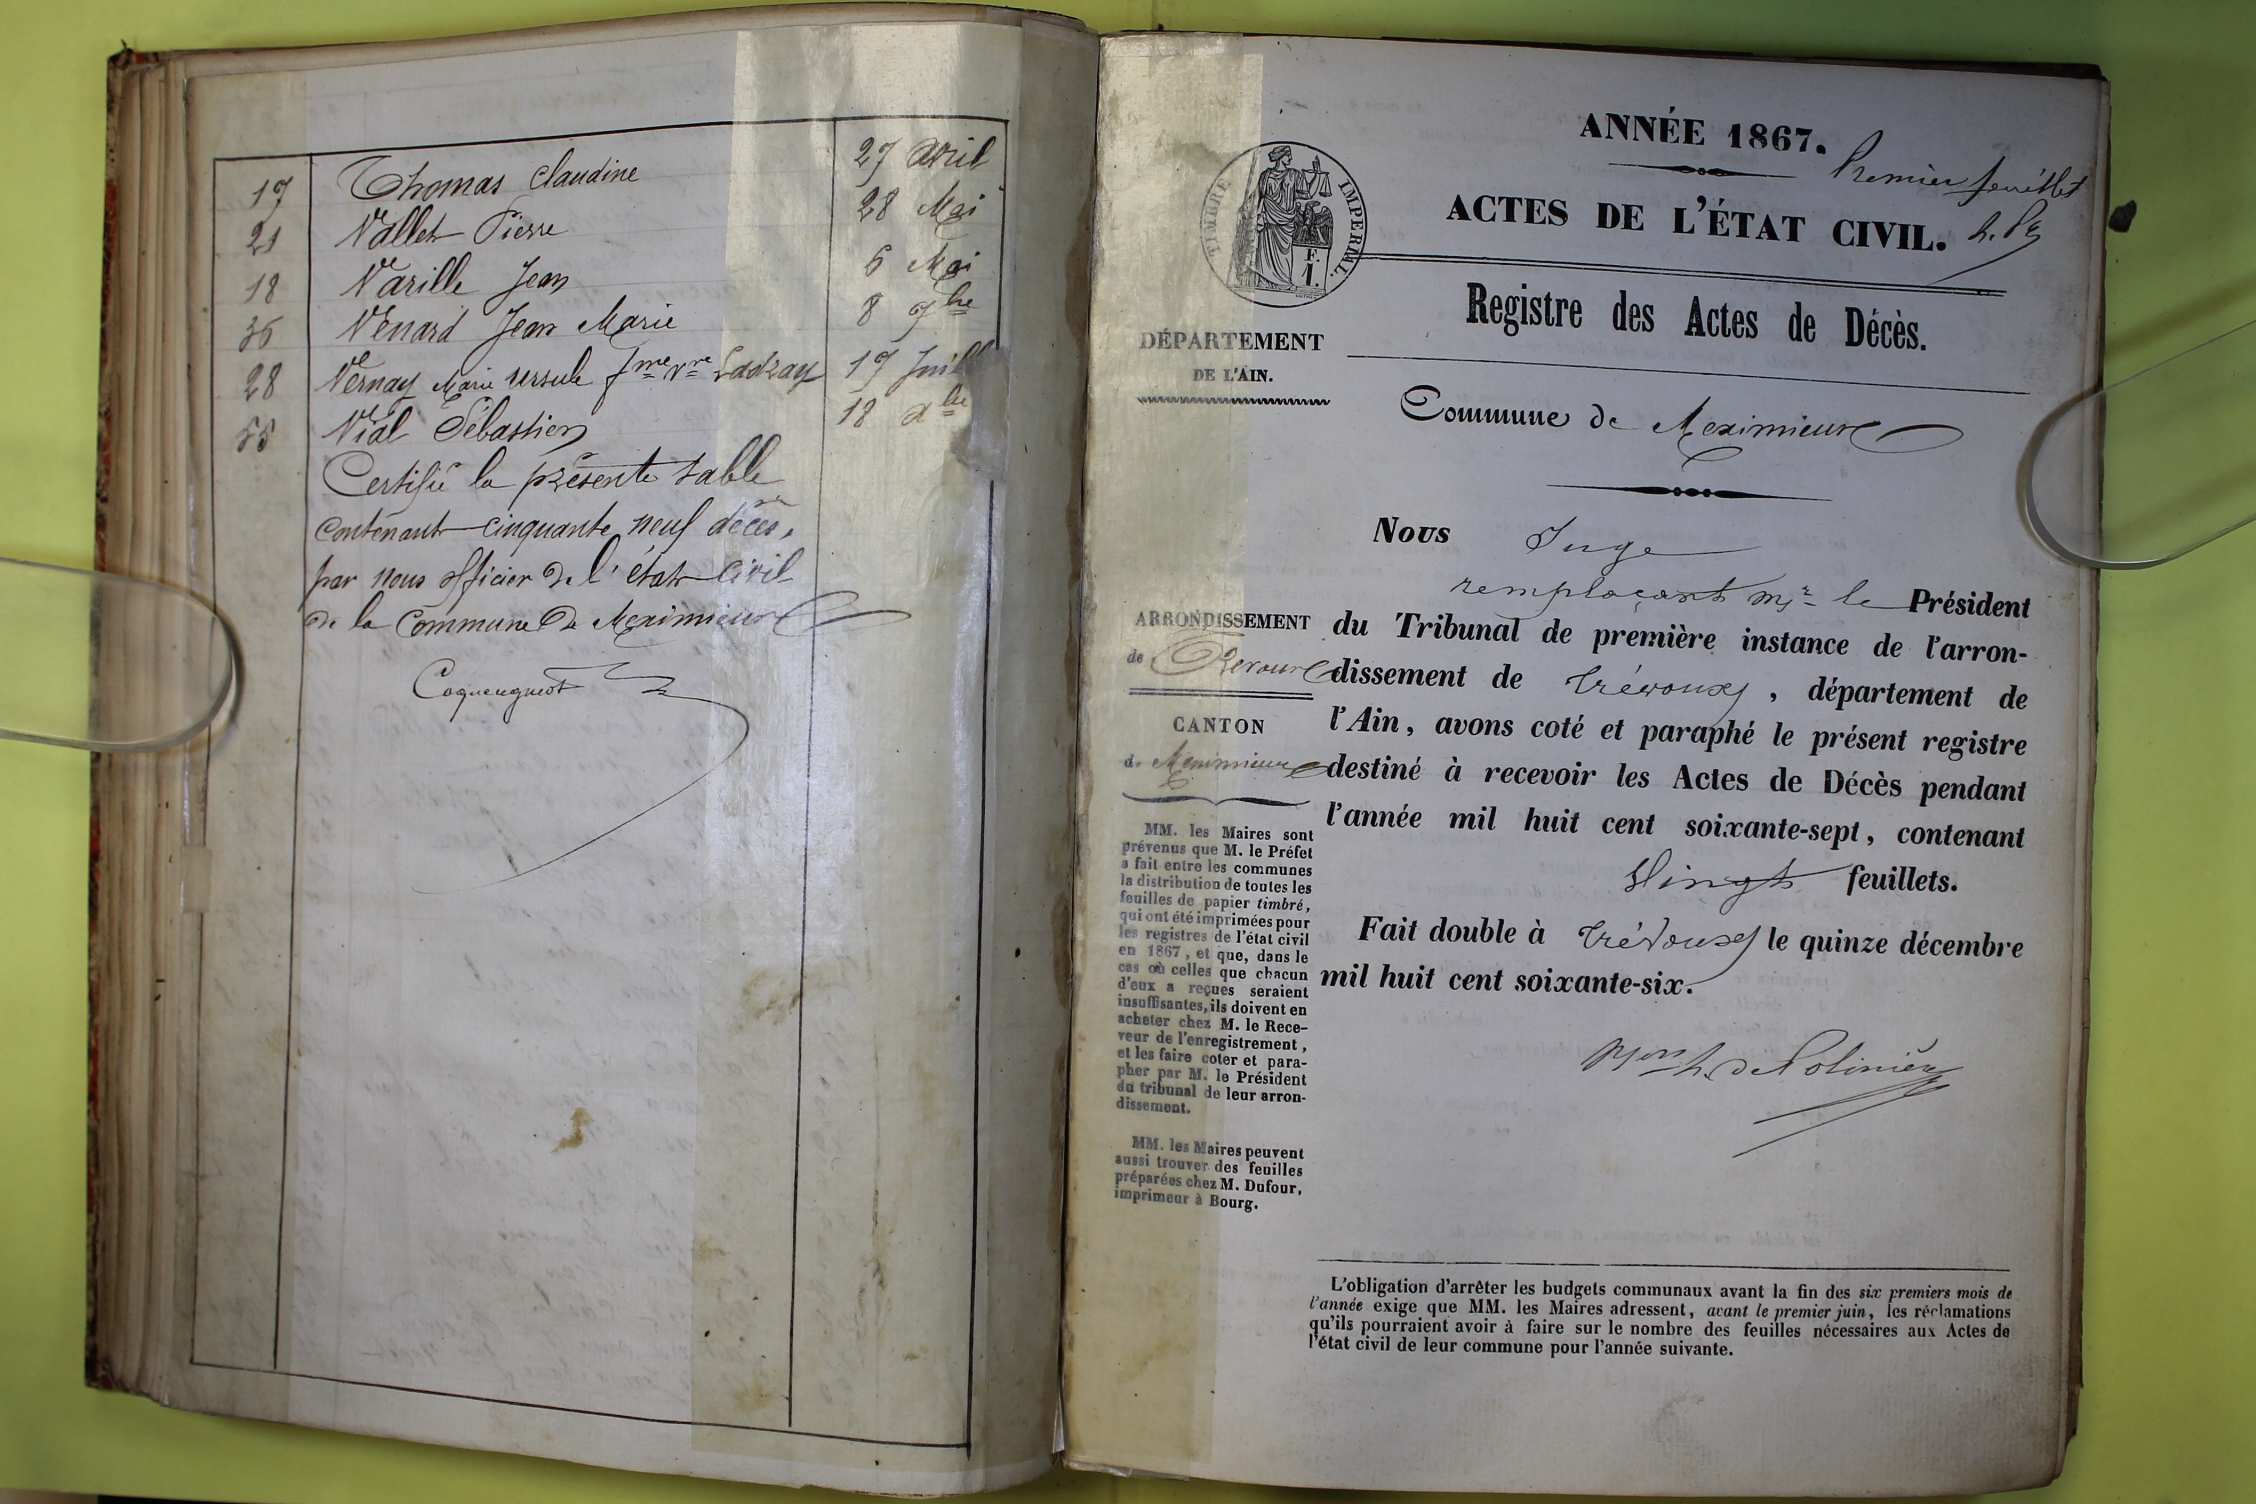 17 Thomas Claudine 27 avril
21 Vallet Pierre 28 Mai
18 Varille Jean 6 Mai
36 Venard Jean Marie 8 7bre
28 Vernay Marie ursule fme vve 17 Juill
55 Vial Sébastien 18 Xbre
Certifié la présente table
contenant cinquante neuf décès,
par nous officier de l'état civil
de la Commune de Meximieux
ANNÉE 1867.
Premier feuillet
ACTES DE L'ÉTAT CIVIL.
TIMBRE IMPERIAL
F.
1.
Registre des Actes de Décès.
DÉPARTEMENT
DE L'AIN.
Commune de Meximieux
Nous Juge
remplaçant Mr le Président
du Tribunal de première instance de l'arron-
dissement de Trévoux, département de
l'Ain, avons coté et paraphé le présent registre
destiné à recevoir les Actes de Décès pendant
l'année mil huit cent soixante-sept, contenant
Vingt feuillets.
Fait double à Trévoux le quinze décembre
mil huit cent soixante-six.
de Polinière
ARRONDISSEMENT
de Trevoux
CANTON
de Meximieux
MM. les Maires sont
prévenus que M. le Préfet
a fait entre les communes
la distribution de toutes les
feuilles de papier timbré,
qui ont été imprimées pour
les registres de l'état civil
en 1867, et que, dans le
cas où celles que chacun
d'eux a reçues seraient
insuffisantes, ils doivent en
acheter chez M. le Rece-
veur de l'enregistrement,
et les faire coter et para-
pher par M. le Président
du tribunal de leur arron-
dissement.
MM. les Maires peuvent
aussi trouver des feuilles
préparées chez M. Dufour,
imprimeur à Bourg.
L'obligation d'arrêter les budgets communaux avant la fin des six premiers mois de
l'année exige que MM. les Maires adressent, avant le premier juin, les réclamations
qu'ils pourraient avoir à faire sur le nombre des feuilles nécessaires aux Actes de
l'état civil de leur commune pour l'année suivante.